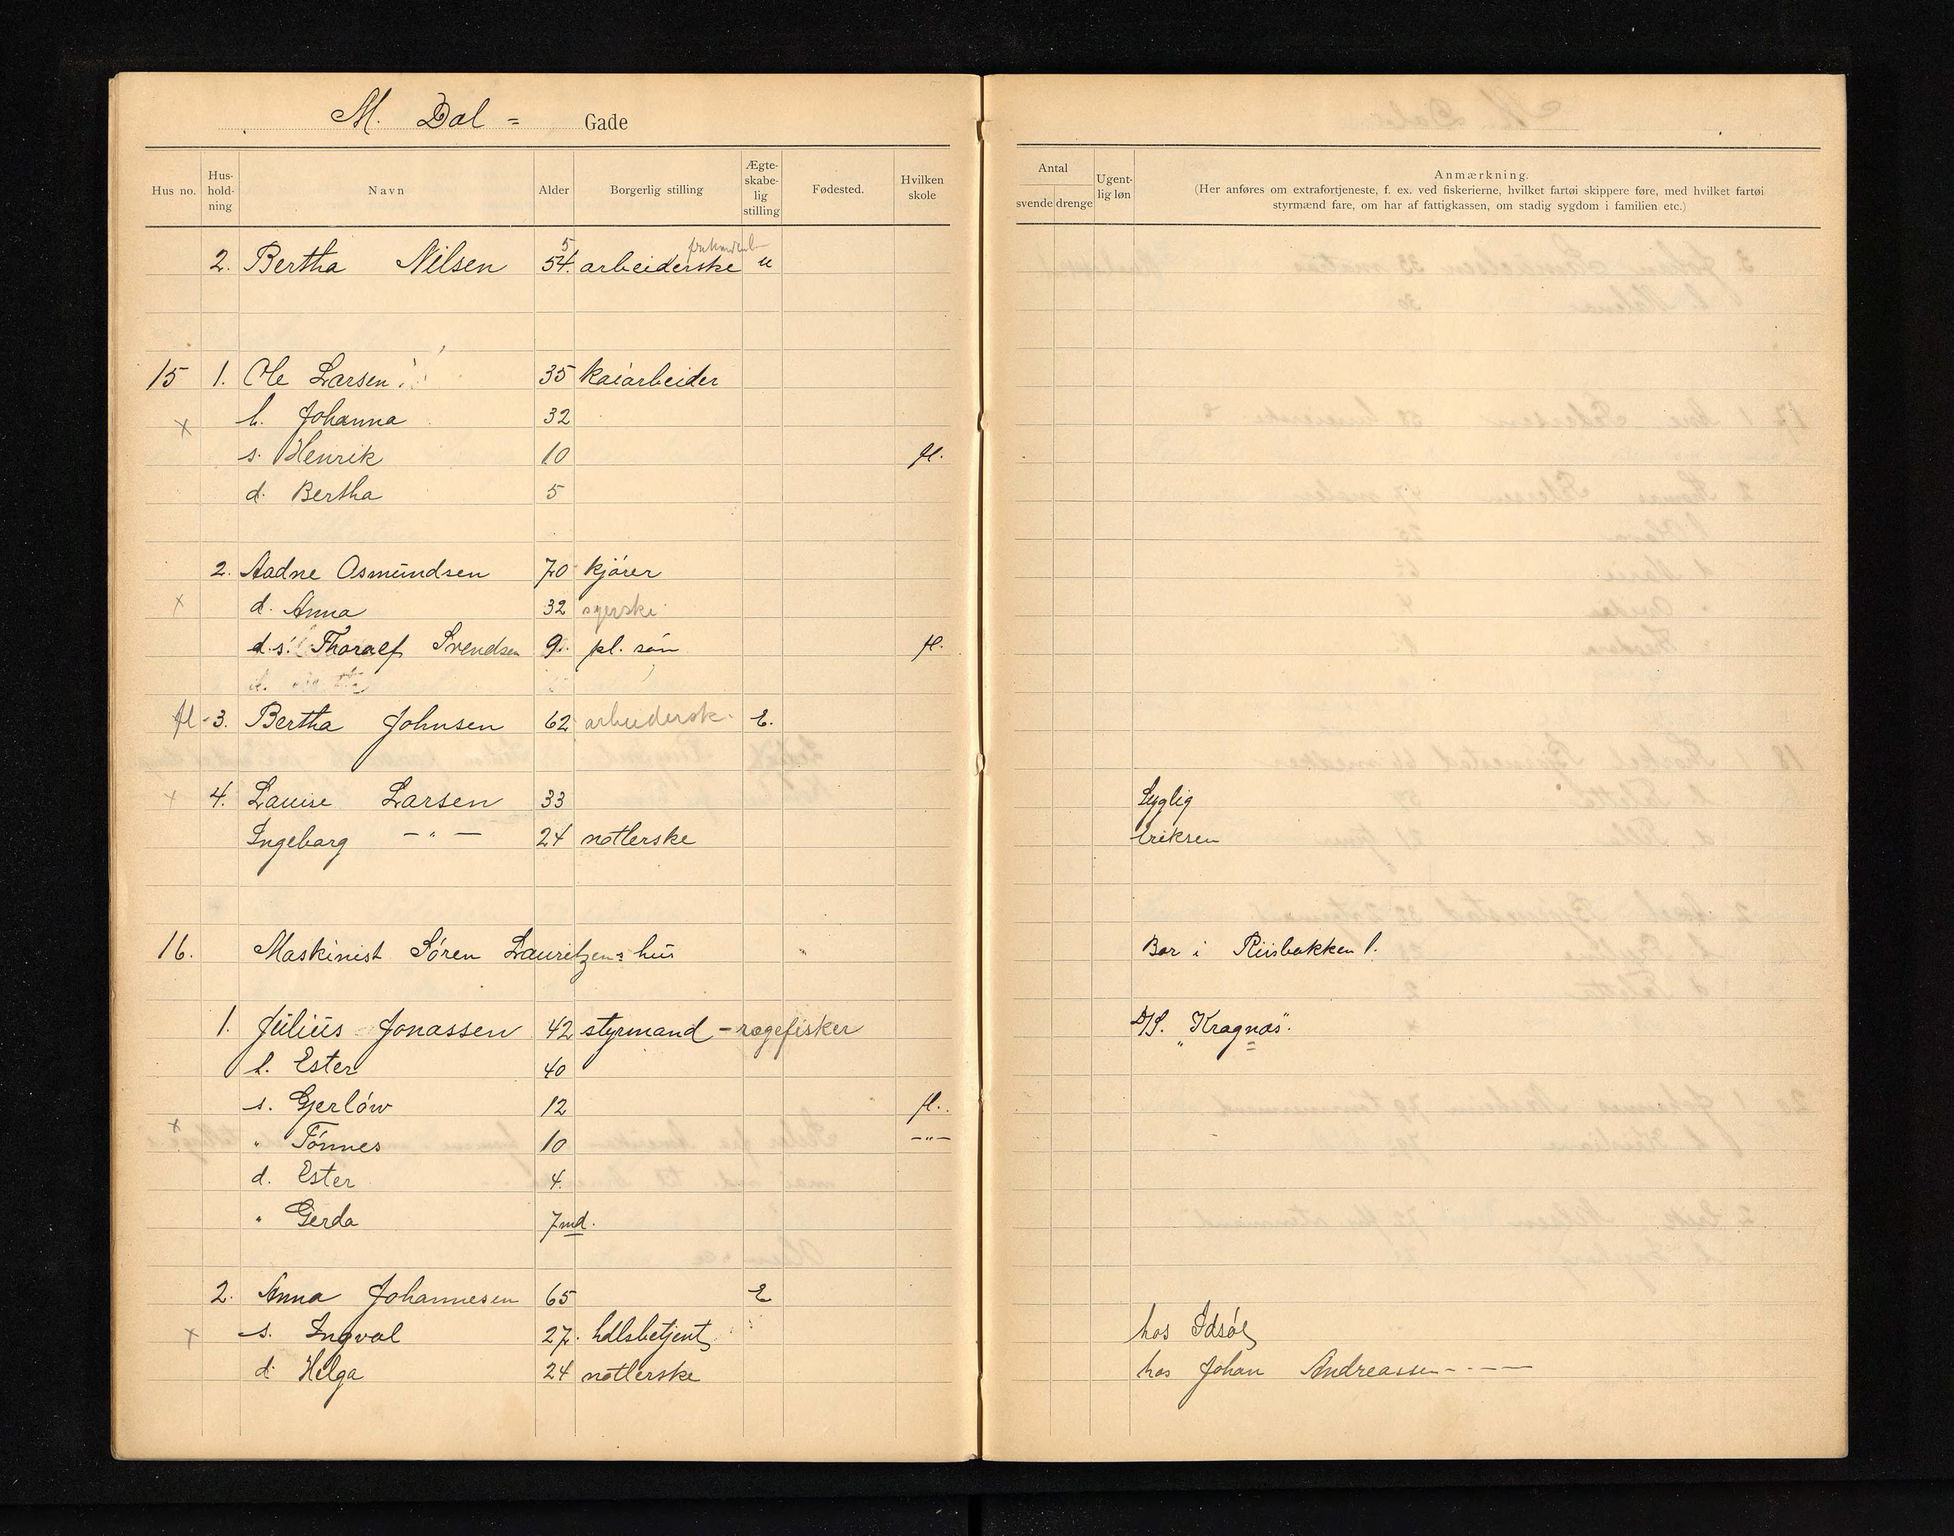 M. Dal = Gade
Hus no. Hus-hold-ning Navn Alder Borgerlig stilling Ægte-skabe-lig stilling Fødested. Hvilken skole
2. Bertha Nilsen 54. 5 arbeiderske u
15 1. Ole Larsen 35 kaiarbeider
h. Johanna 32
s. Henrik 10 fl.
d. Bertha 5
2. Aadne Osmundsen 70 kjører
d. Anna 32 syerske
d.s. Thoralf Svendsen 9. pl. søn fl.
fl - 3. Bertha Johnsen 62 arbeidersk. E.
4. Lauise Larsen 33
Ingeborg — " — 24 notlerske
16. Maskinist Søren Lauritzens hus
1. Julius Jonassen 42 styrmand - rægefisker
h. Ester 40
s. Gjerløw 12 fl.
" Tønnes 10 — " —
d. Ester 4.
" Gerda 7 md.
2. Anna Johannesen 65 E
s. Ingval 27. hdlsbetjent
d. Helga 24 notlerske
Antal svende drenge Ugent-lig løn Anmærkning.
(Her anføres om extrafortjeneste, f. ex. ved fiskerierne, hvilket fartøi skippere føre, med hvilket fartøi
styrmænd fare, om har af fattigkassen, om stadig sygdom i familien etc.)
Syglig
Eriksen
Bor i Riisbakken 1.
D/S. "Kragnæs".
hos Idsøe
hos Johan Andreassen - - - —